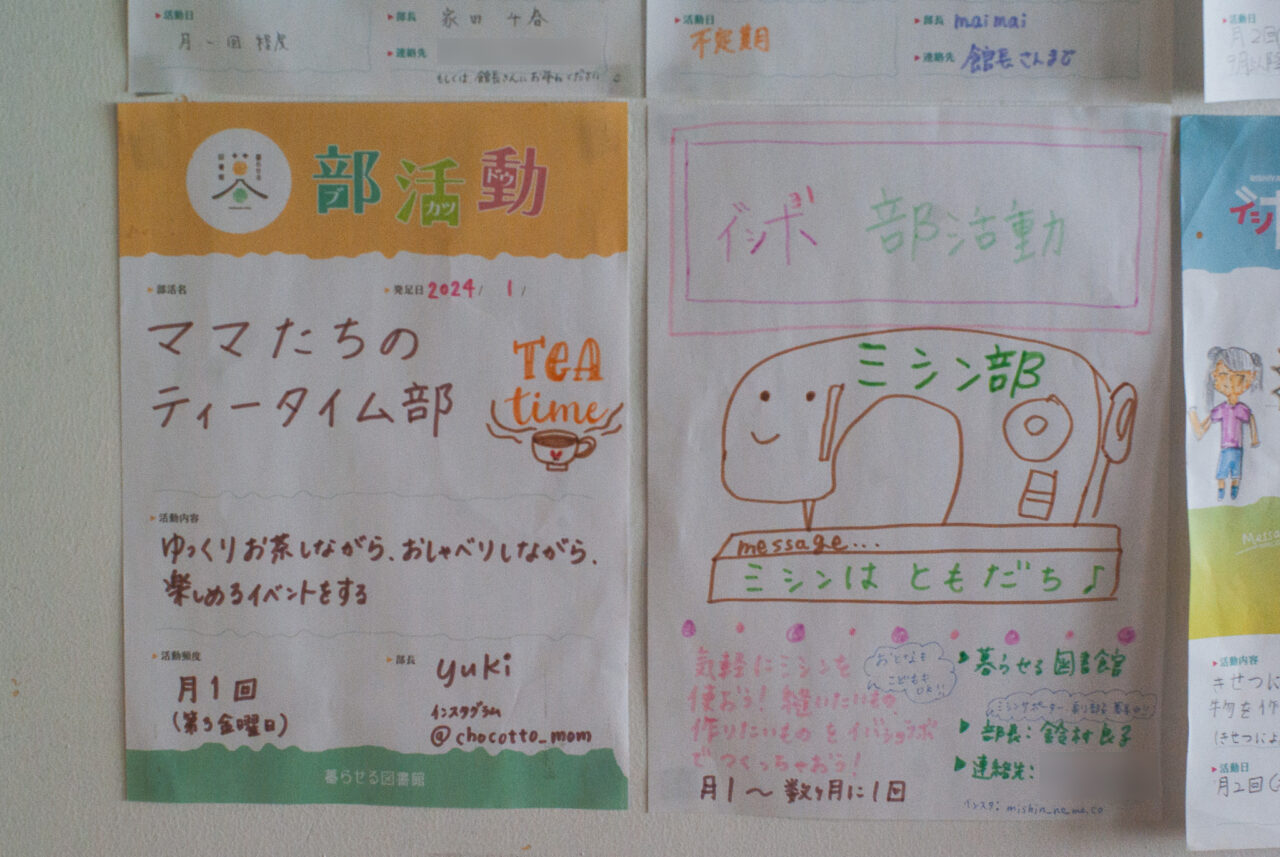 ▶活動日
月一回程度
▶部長
▶連絡先
もしくは、館長さんにお尋ねください
▶活動日
不定期
▶部長 maimai
▶連絡先 館長さんまで
▶活動日
月2回
9月以降
暮らせる
図書館
部活動
ブ カツ ドウ
▶部活名
▶発足日 2024/ 1 /
ママたちの
ティータイム部
TEA
time
▶活動内容
ゆっくりお茶しながら、おしゃべりしながら、
楽しめるイベントをする
▶活動頻度
月1回
(第3金曜日)
▶部長 yuki
インスタグラム
@chocotto_mom
暮らせる図書館
部活動
ミシン部
message...
ミシンは ともだち♪
気軽にミシンを
使おう! 縫いたいもの
作りたいものを
でつくっちゃおう!
月1〜数ヶ月に1回
おとなも
こどもも
OK!!
▶暮らせる図書館
▶部長: 鈴村良子
▶連絡先:
Message
▶活動内容
きせつに
物を作
(きせつによ
▶活動日
月2回